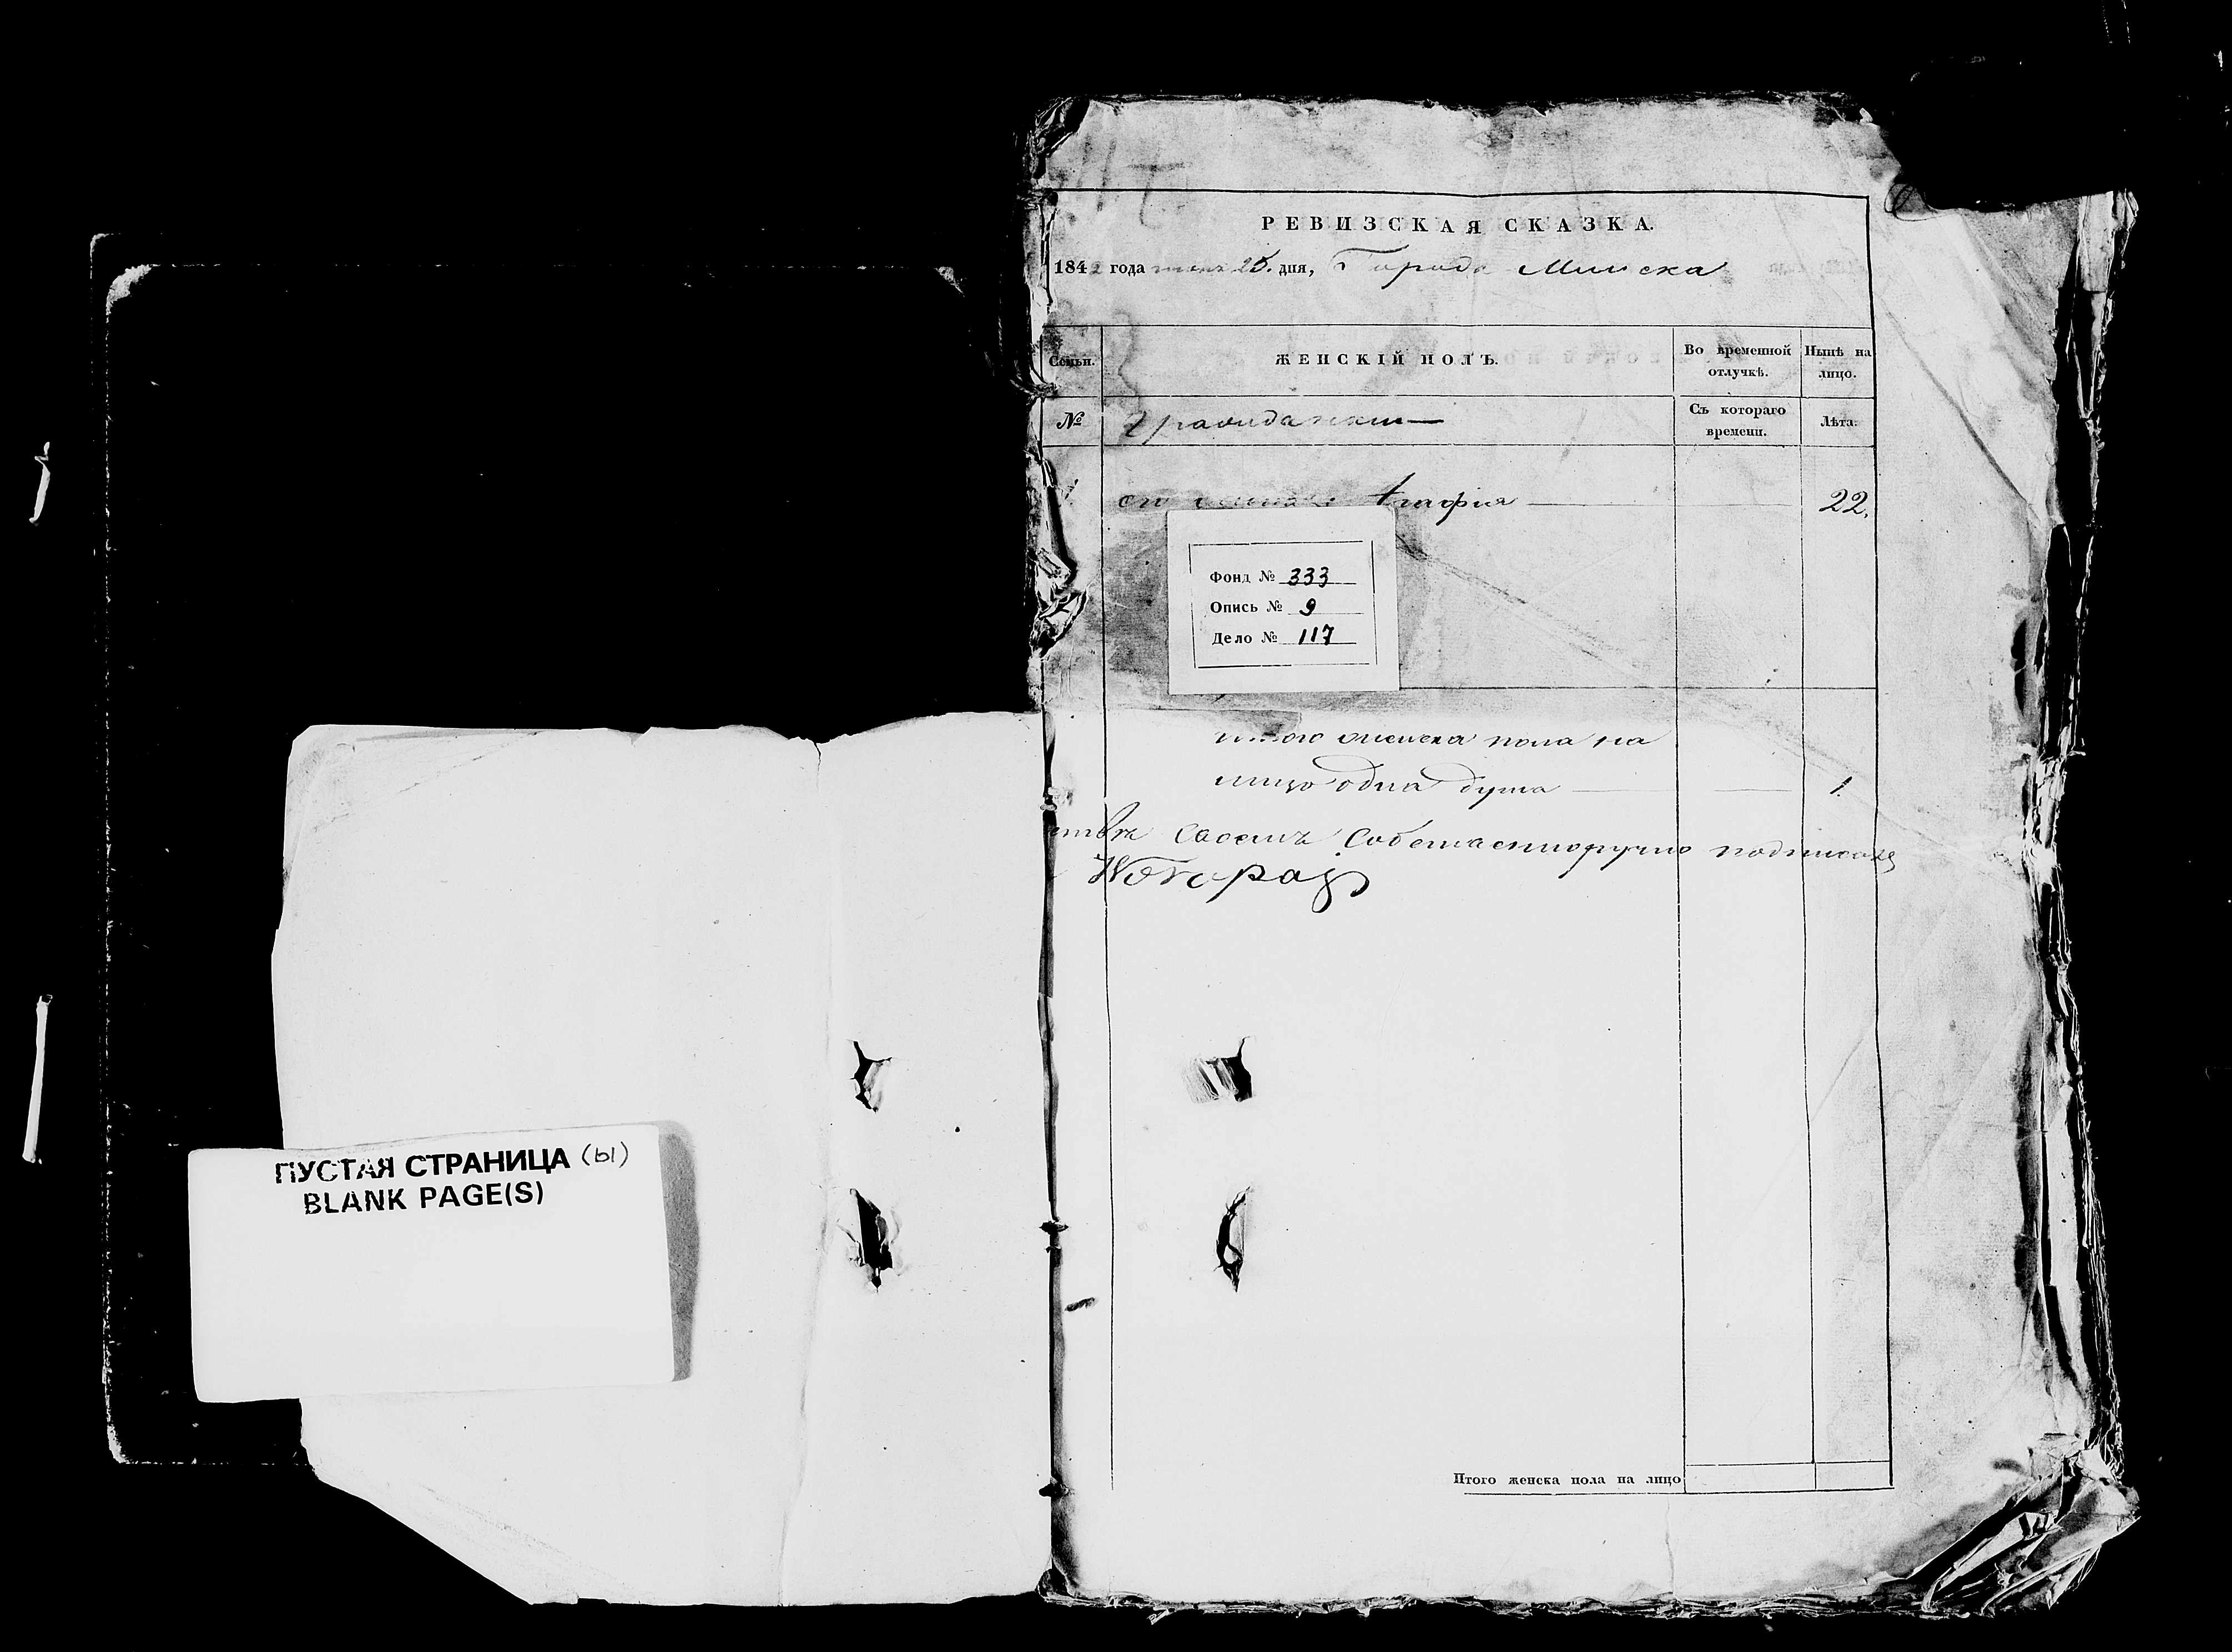 РЕВИЗСКАЯ СКАЗКА.
184 года 25. дня, Города Минска
Семьи.
ЖЕНСКІЙ ПОЛЪ.
Во временной отлучкѣ.
Нынѣ на лицо.
№
Гражданки
Съ котораго времени.
Лѣта.
Агафия 22.
Фонд № 333
Опись № 9
Дело № 117
женска пола на
лицо одна душа 1.
своемъ Собственноручно
ПУСТАЯ СТРАНИЦА (Ы)
BLANK PAGE(S)
Итого женска пола на лицо